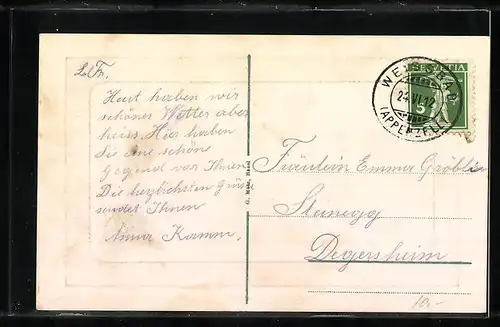 L. Fr.
Heut haben wir
schönes Wetter aber
heiss. Hier haben
Sie eine schöne
Gegend von Ihnen.
Die herzlichsten Grüsse
sendet Ihnen
Anna Kamm.
HELVETIA
5
WEISSBAD
24.VI.12
(APPENZELL)
Fräulein Emma Gröbli
Stanegg
Degersheim
18.-